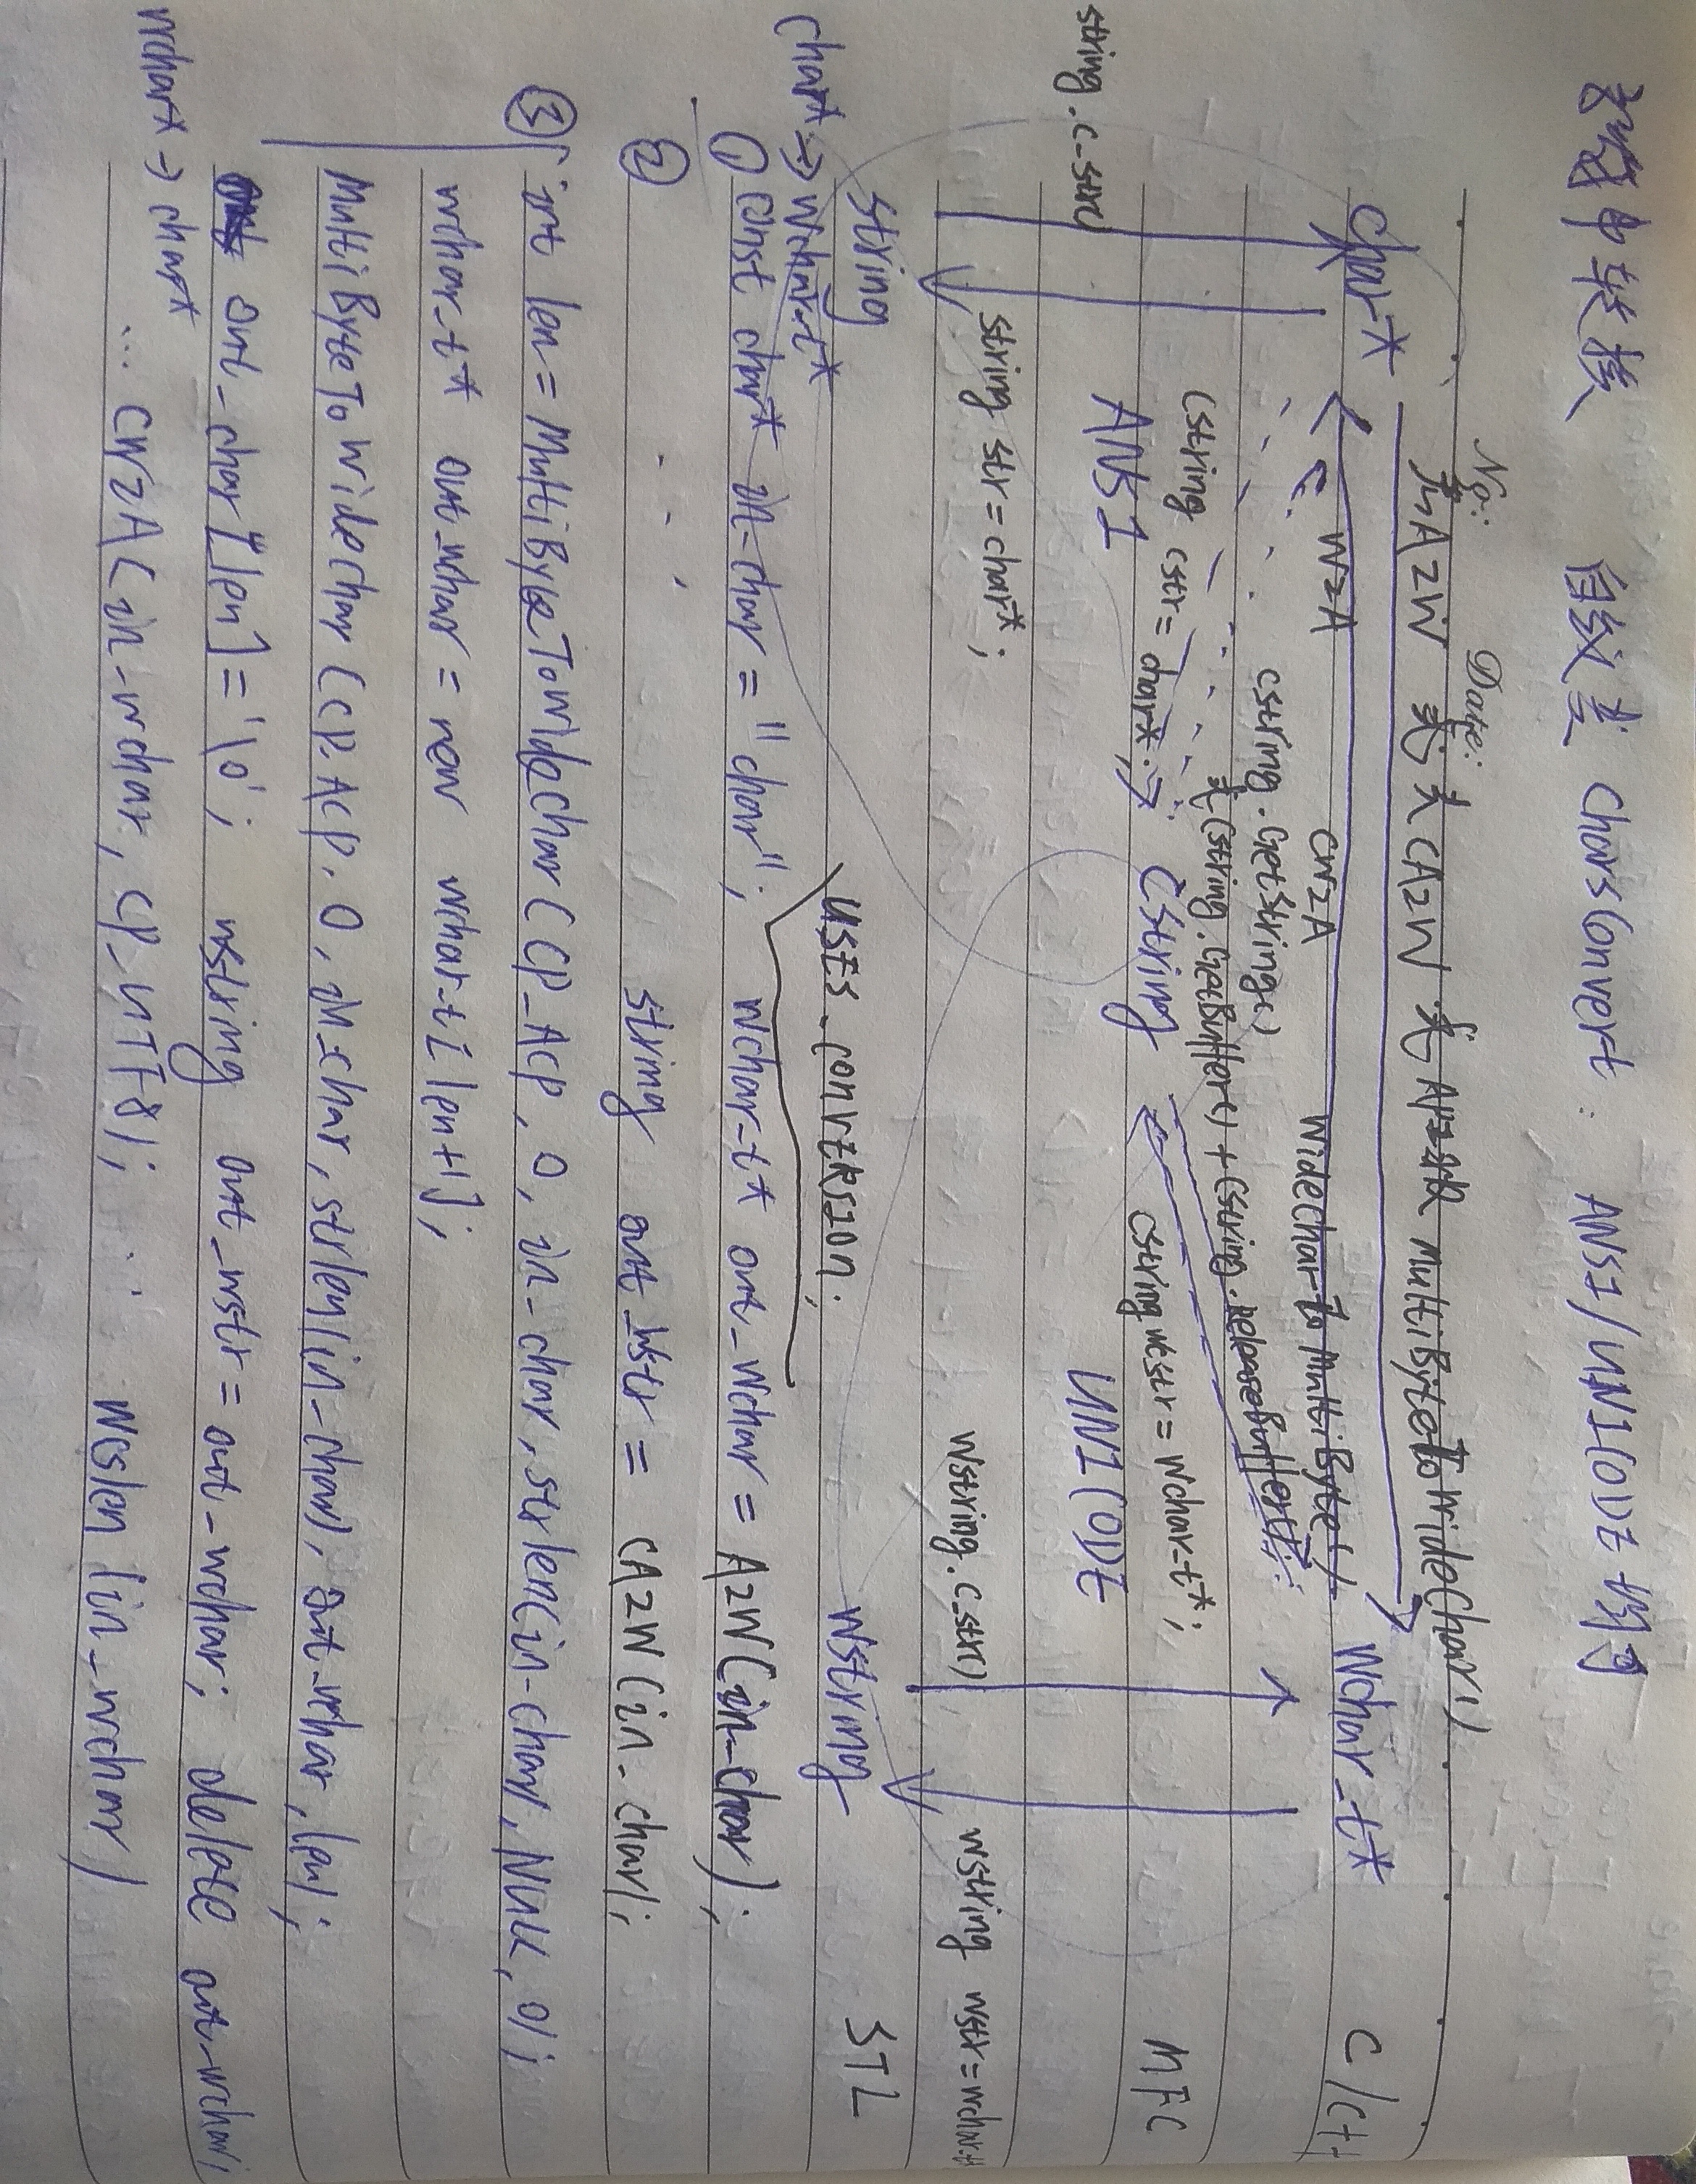 字符串转换 自编类 CharsConvert: ANSI/UNICODE 均可
No: Date:
宏A2W 或 类CA2W 或 API函数 MultiByteToWideChar()
char* wchar_t* C/C++
W2A CW2A WideCharToMultiByte()
CString.GetString()
或CString.GetBuffer() + CString.ReleaseBuffer();
CString cstr = char*; CString CString wcstr = wchar_t*; MFC
ANSI UNICODE
string.c_str()
string str = char*; wstring.c_str() wstring wstr = wchar_t
string wstring STL
USES_CONVERSION;
char* → wchar_t*
① const char* in_char = "char"; wchar_t* out_wchar = A2W(in_char);
② ... string out_wstr = CA2W(in_char);
③ int len = MultiByteToWideChar(CP_ACP, 0, in_char, strlen(in_char), NULL, 0);
wchar_t* out_wchar = new wchar_t[len+1];
MultiByteToWideChar(CP_ACP, 0, in_char, strlen(in_char), out_wchar, len);
out_char[len] = '\0'; wstring out_wstr = out_wchar; delete out_wchar;
wchar* → char*
... CW2A(in_wchar, CP_UTF8); ... wcslen(in_wchar)